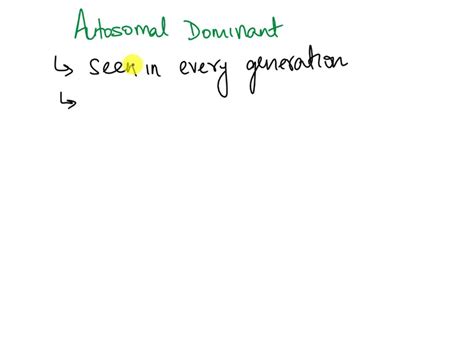 Autosomal Dominant
↳ seen in every generation
↳